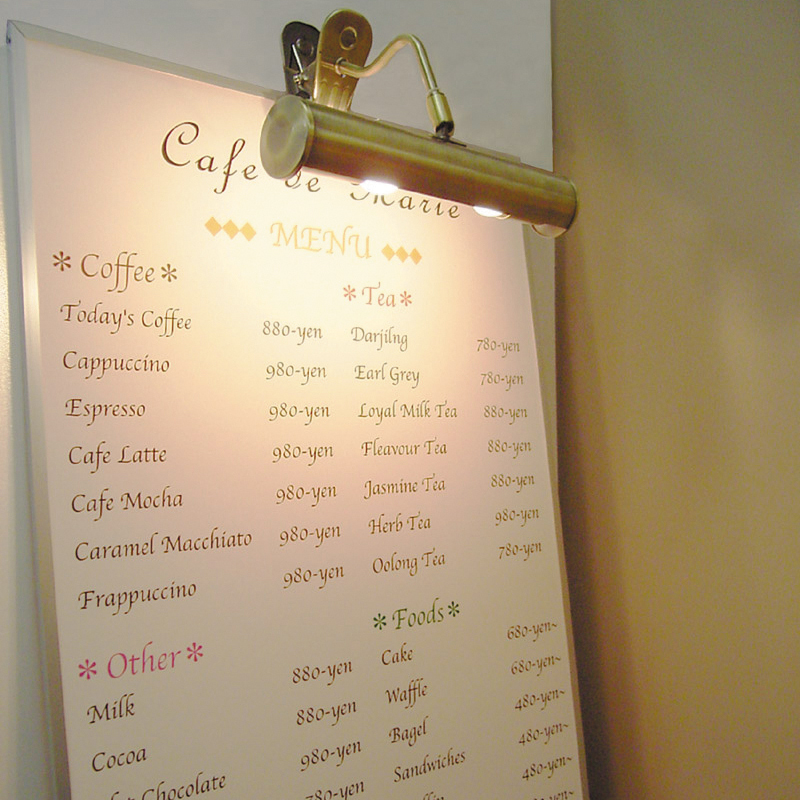 Cafe de Marie
MENU
* Coffee *
Today's Coffee 880-yen
Cappuccino 980-yen
Espresso 980-yen
Cafe Latte 980-yen
Cafe Mocha 980-yen
Caramel Macchiato 980-yen
Frappuccino 980-yen
* Other *
Milk 880-yen
Cocoa 880-yen
Chocolate 980-yen
780-yen
* Tea *
Darjilng 780-yen
Earl Grey 780-yen
Loyal Milk Tea 880-yen
Fleavour Tea 880-yen
Jasmine Tea 880-yen
Herb Tea 980-yen
Oolong Tea 780-yen
* Foods *
Cake 680-yen~
Waffle 680-yen~
Bagel 480-yen~
Sandwiches 480-yen~
480-yen~